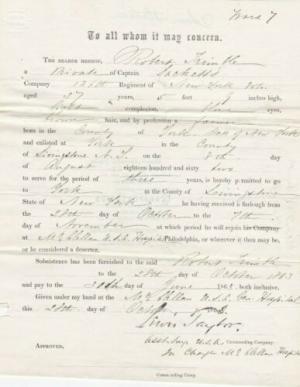 Ward 7
To all whom it may concern.
THE BEARER HEREOF, Robert Trimble
a Private of Captain Sacketts
Company 126th Regiment of New York Vols
aged 27 years, 5 feet 9 inches high,
light complexion, Blue eyes,
brown hair, and by profession a farmer
born in the County of York State of New York
and enlisted at York in the County
of Livingstone N.Y. on the 8th day
of August eighteen hundred and sixty two
to serve for the period of three years, is hereby permitted to go
to York in the County of Livingstone
State of New York he having received a furlough from
the 28th day of October to the 7th
day of November at which period he will rejoin his Company
at McClellan U.S.A. Hospital Philadelphia, or wherever it then may be,
or be considered a deserter.
Subsistence has been furnished to the said Robert Trimble
to the 28th day of October 1863
and pay to the 30th day of June 186 both inclusive.
Given under my hand at the McClellan U.S.A. Gen Hospital
this 28th day of October
Lewis Taylor
Asst Surg U.S.A. Commanding Company.
In Charge McClellan Hospital
APPROVED,
Commanding Comp.